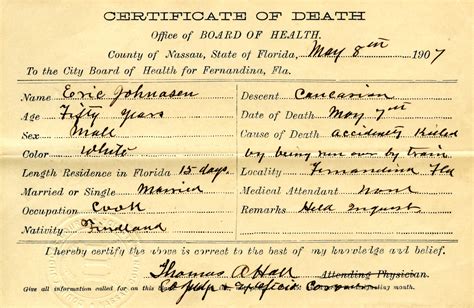 CERTIFICATE OF DEATH
Office of BOARD OF HEALTH.
County of Nassau, State of Florida, May 8th 1907
To the City Board of Health for Fernandina, Fla.
Name Eric Johnasen
Age Fifty Years
Sex Mall
Color White
Length Residence in Florida 15 days.
Married or Single Married
Occupation Cook
Nativity Findland
Descent Caucasian
Date of Death May 7th
Cause of Death Accidently Killed
by being run over by train
Locality Fernandina Fla
Medical Attendant None
Remarks Held Inquest
I hereby certify the above is correct to the best of my knowledge and belief.
Thomas A Hall Attending Physician.
Give all information called for on this Co Judge & Exofficio